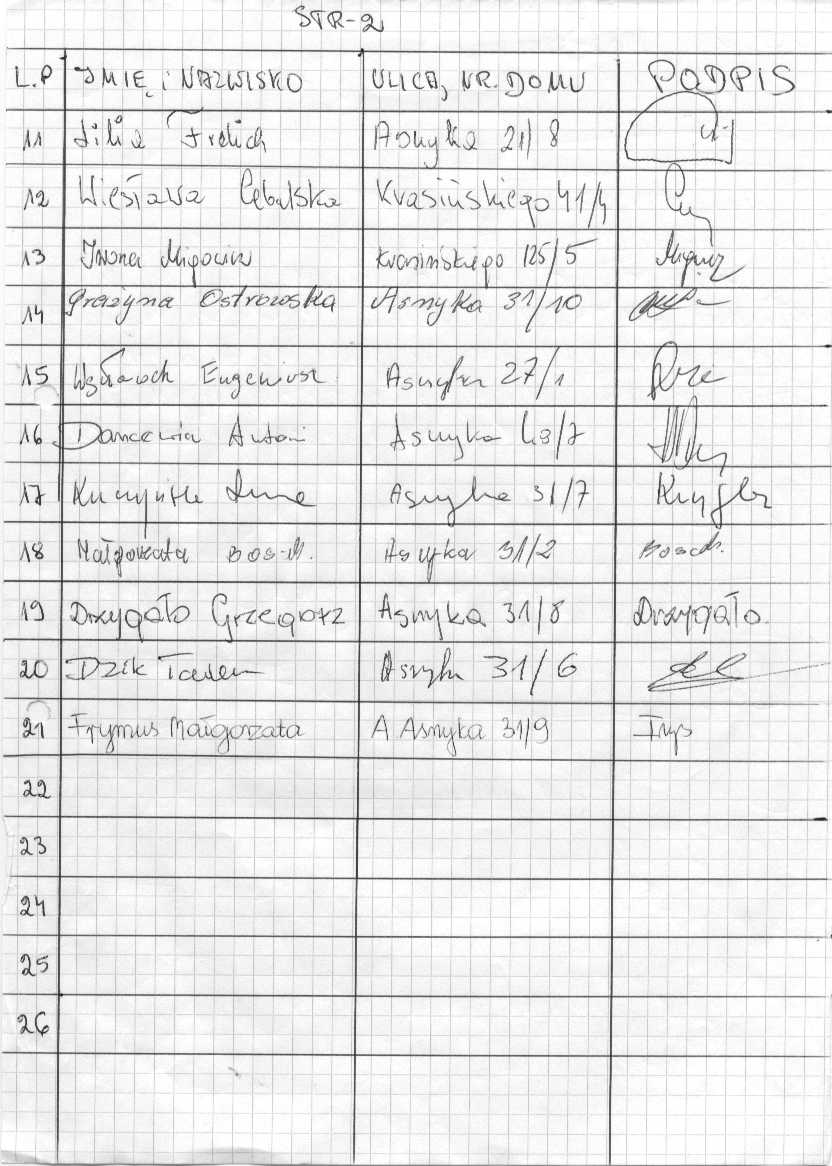 STR-2
L.P IMIĘ i NAZWISKO ULICA, NR. DOMU PODPIS
11 Lilia Frelich Asnyka 21/8
12 Wiesława Cębalska Krasińskiego 41/4
13 Iwona Migocin Krasińskiego 125/5
14 Grażyna Ostrowska Asnyka 31/10
15 Eugeniusz Asnyka 27/1
16 Antoni Asnyka 43/7
17 Asnyka 31/7
18 Małgorzata BOS-M. Asnyka 31/2
19 Drzygało Grzegorz Asnyka 31/8 Drzygało
20 Dzik Tadeusz Asnyka 31/6
21 Frymus Małgorzata A Asnyka 31/9
22
23
24
25
26